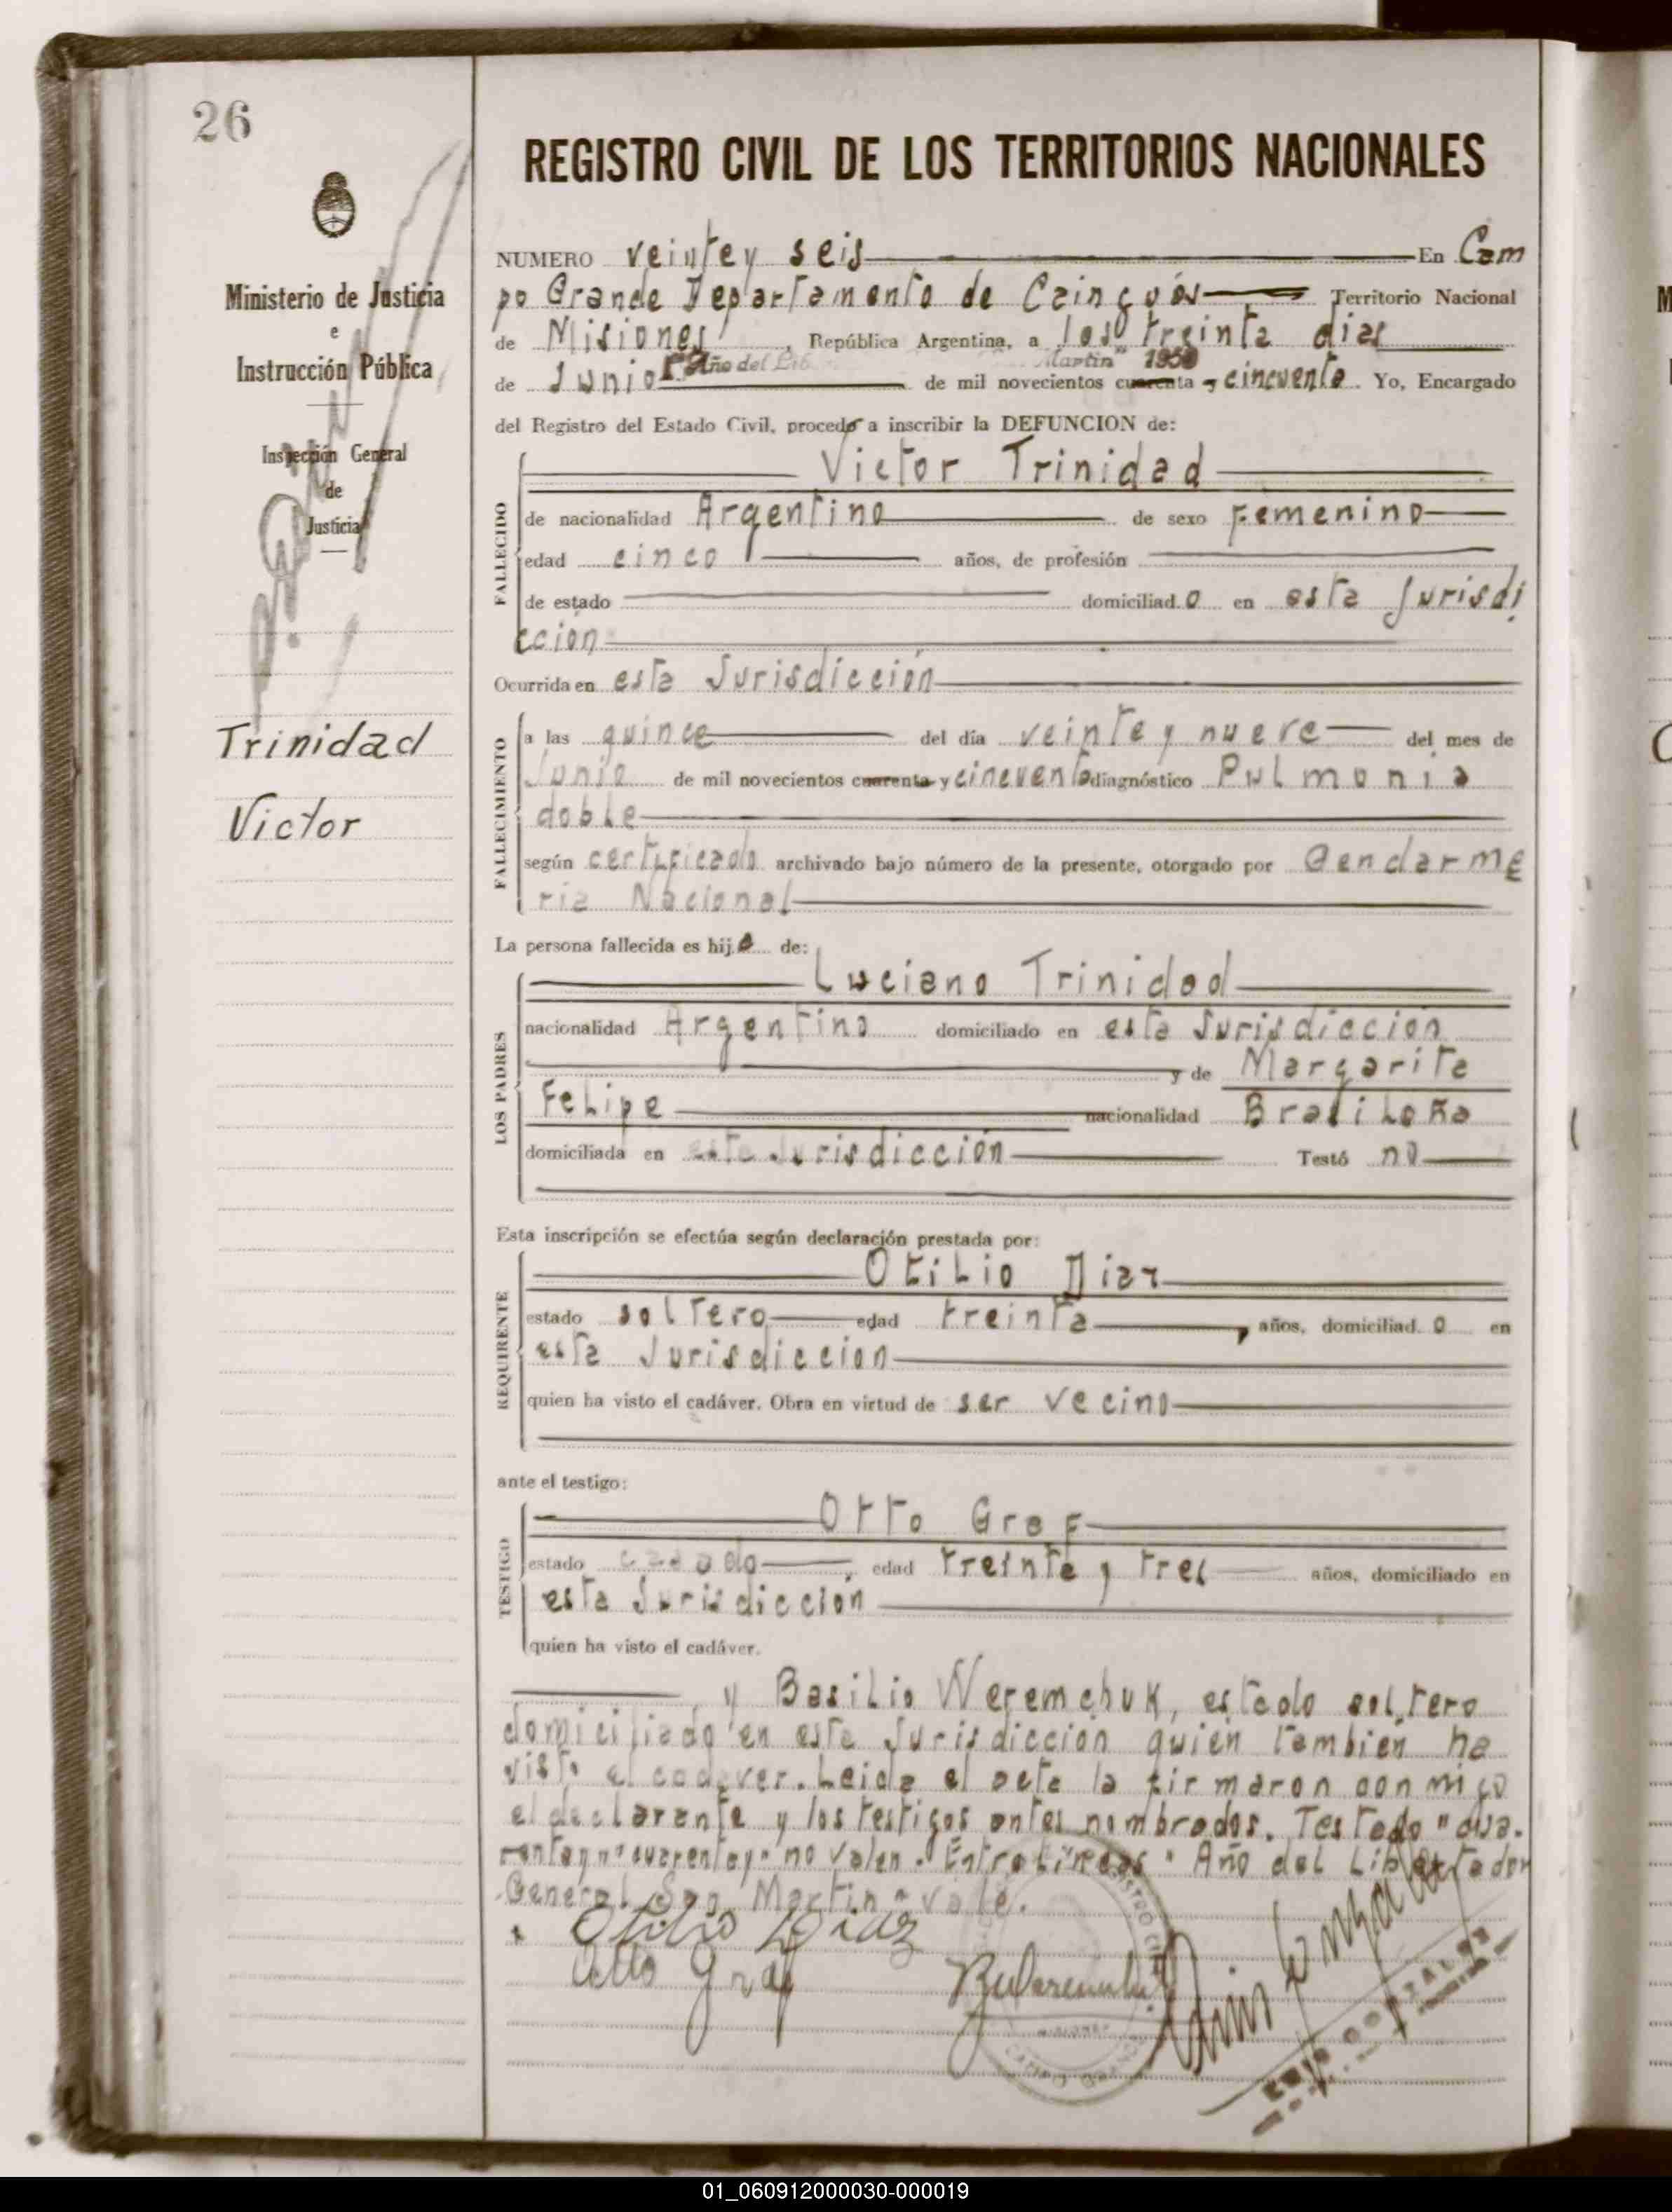 26
Ministerio de Justicia
e
Instrucción Pública
Inspección General
de
Justicia
Trinidad
Victor
REGISTRO CIVIL DE LOS TERRITORIOS NACIONALES
NUMERO veinte y seis En Cam
po Grande Departamento de Cainguás Territorio Nacional
de Misiones, República Argentina, a los treinta dias
Año del Lib Martin" 1950
de Junio de mil novecientos cuarenta y cincuenta. Yo, Encargado
del Registro del Estado Civil, procedo a inscribir la DEFUNCION de:
Victor Trinidad
FALLECIDO
de nacionalidad Argentino de sexo Femenino
edad cinco años, de profesión
de estado domiciliado en esta Jurisdi
cción
Ocurrida en esta Jurisdicción
FALLECIMIENTO
a las quince del día veinte y nueve del mes de
Junio de mil novecientos cuarenta y cincuenta diagnóstico Pulmonia
doble
según certificado archivado bajo número de la presente, otorgado por Gendarme
ria Nacional
La persona fallecida es hijo de:
LOS PADRES
Luciano Trinidad
nacionalidad Argentino domiciliado en esta Jurisdicción
y de Margarita
Felipe nacionalidad Brasileña
domiciliada en esta Jurisdicción Testó no
Esta inscripción se efectúa según declaración prestada por:
REQUIRENTE
Otilio Diaz
estado soltero edad treinta, años, domiciliado en
esta Jurisdiccion
quien ha visto el cadáver. Obra en virtud de ser vecino
ante el testigo:
TESTIGO
Otto Graf
estado casado, edad treinta y tres años, domiciliado en
esta Jurisdicción
quien ha visto el cadáver.
y Basilio Weremchuk, estado soltero
domiciliado en esta Jurisdicción quién también ha
visto el cadaver. Leida el acta la firmaron conmigo
el declarante y los testigos antes nombrados. Testado "cua-
renta y" "cuarenta y" no valen. Entrelineas "Año del Libertador
General San Martin" vale.
Otilio Diaz
Otto Graf
01_060912000030-000019